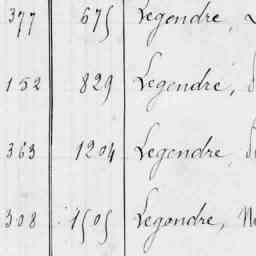 377 675 Legendre,
152 829 Legendre,
363 1204 Legendre,
308 1505 Legendre,